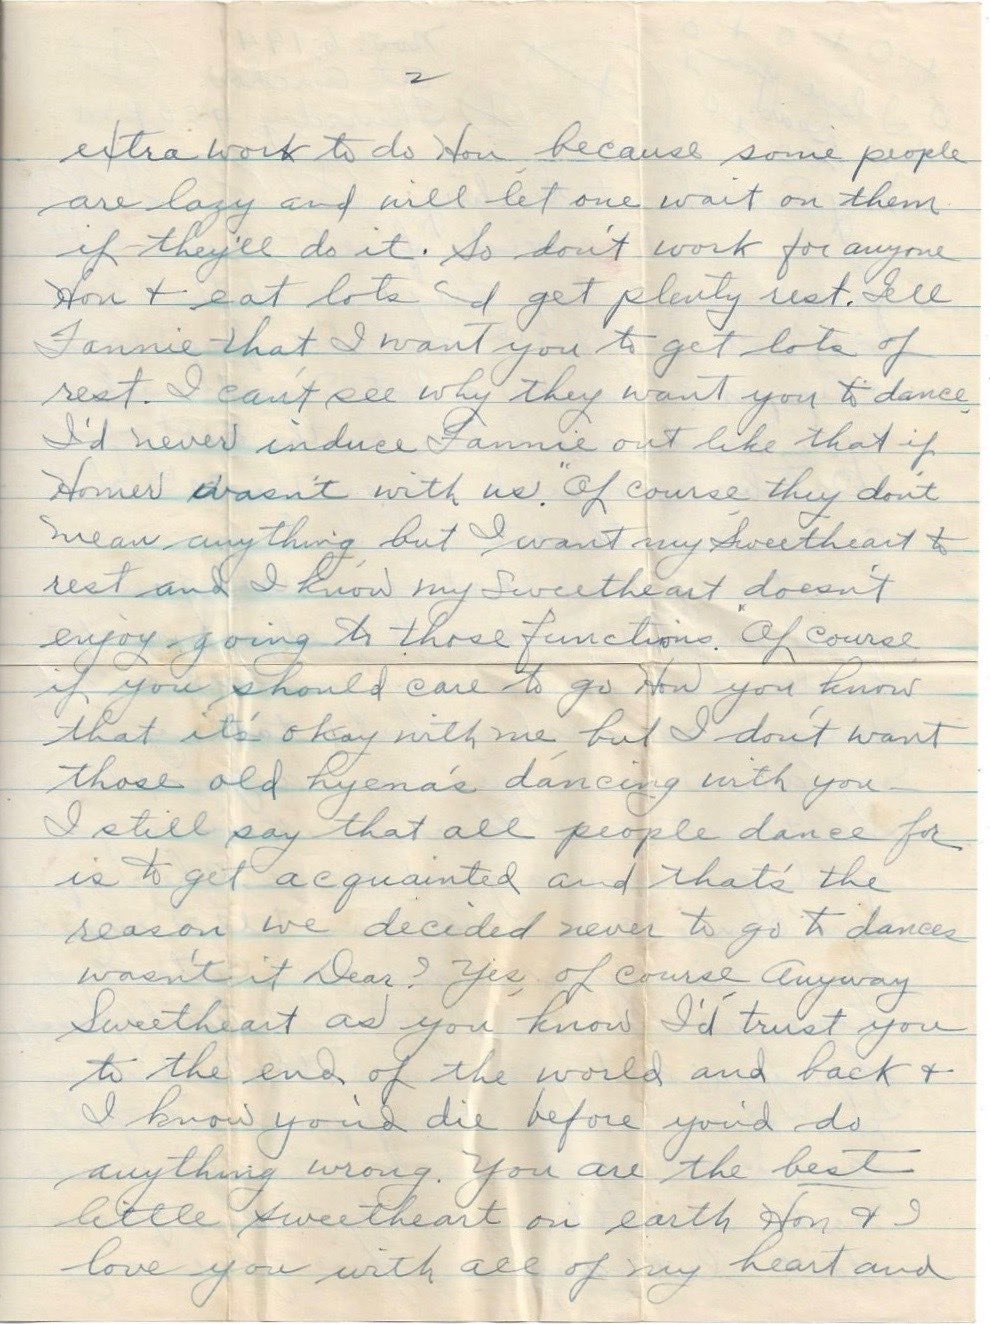 2
extra work to do Hon because some people
are lazy and will let one wait on them
if they'll do it. So don't work for anyone
Hon + eat lots and get plenty rest. Tell
Fannie that I want you to get lots of
rest. I can't see why they want you to dance.
I'd never induce Fannie out like that if
Homer wasn't with us. "Of course they don't
mean anything but I want my Sweetheart to
rest and I know my Sweetheart doesn't
enjoy going to those functions." Of course
if you should care to go Hon you know
that it's okay with me but I don't want
those old hyena's dancing with you –
I still say that all people dance for
is to get acquainted and that's the
reason we decided never to go to dances
wasn't it Dear? Yes, of course Anyway
Sweetheart as you know I'd trust you
to the end of the world and back +
I know you'd die before you'd do
anything wrong. You are the best
little sweetheart on earth Hon + I
love you with all of my heart and